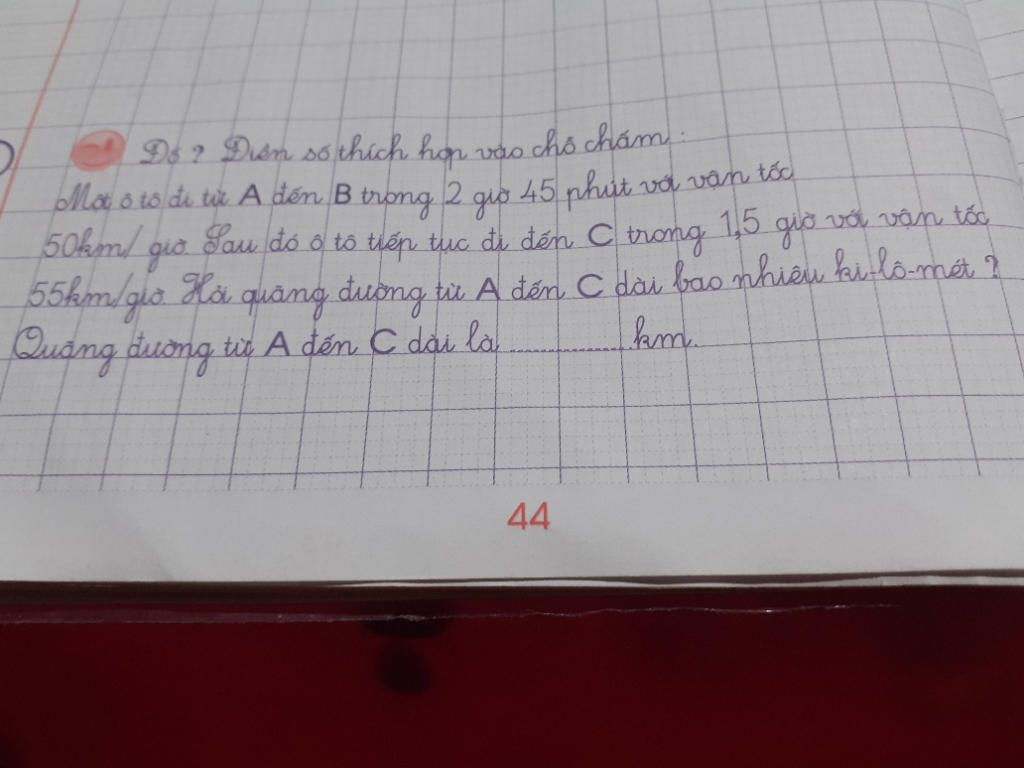 Đố? Điền số thích hợp vào chỗ chấm:
Một ô tô đi từ A đến B trong 2 giờ 45 phút với vận tốc
50km/giờ. Sau đó ô tô tiếp tục đi đến C trong 1,5 giờ với vận tốc
55km/giờ. Hỏi quãng đường từ A đến C dài bao nhiêu ki-lô-mét?
Quãng đường từ A đến C dài là ............... km.
44